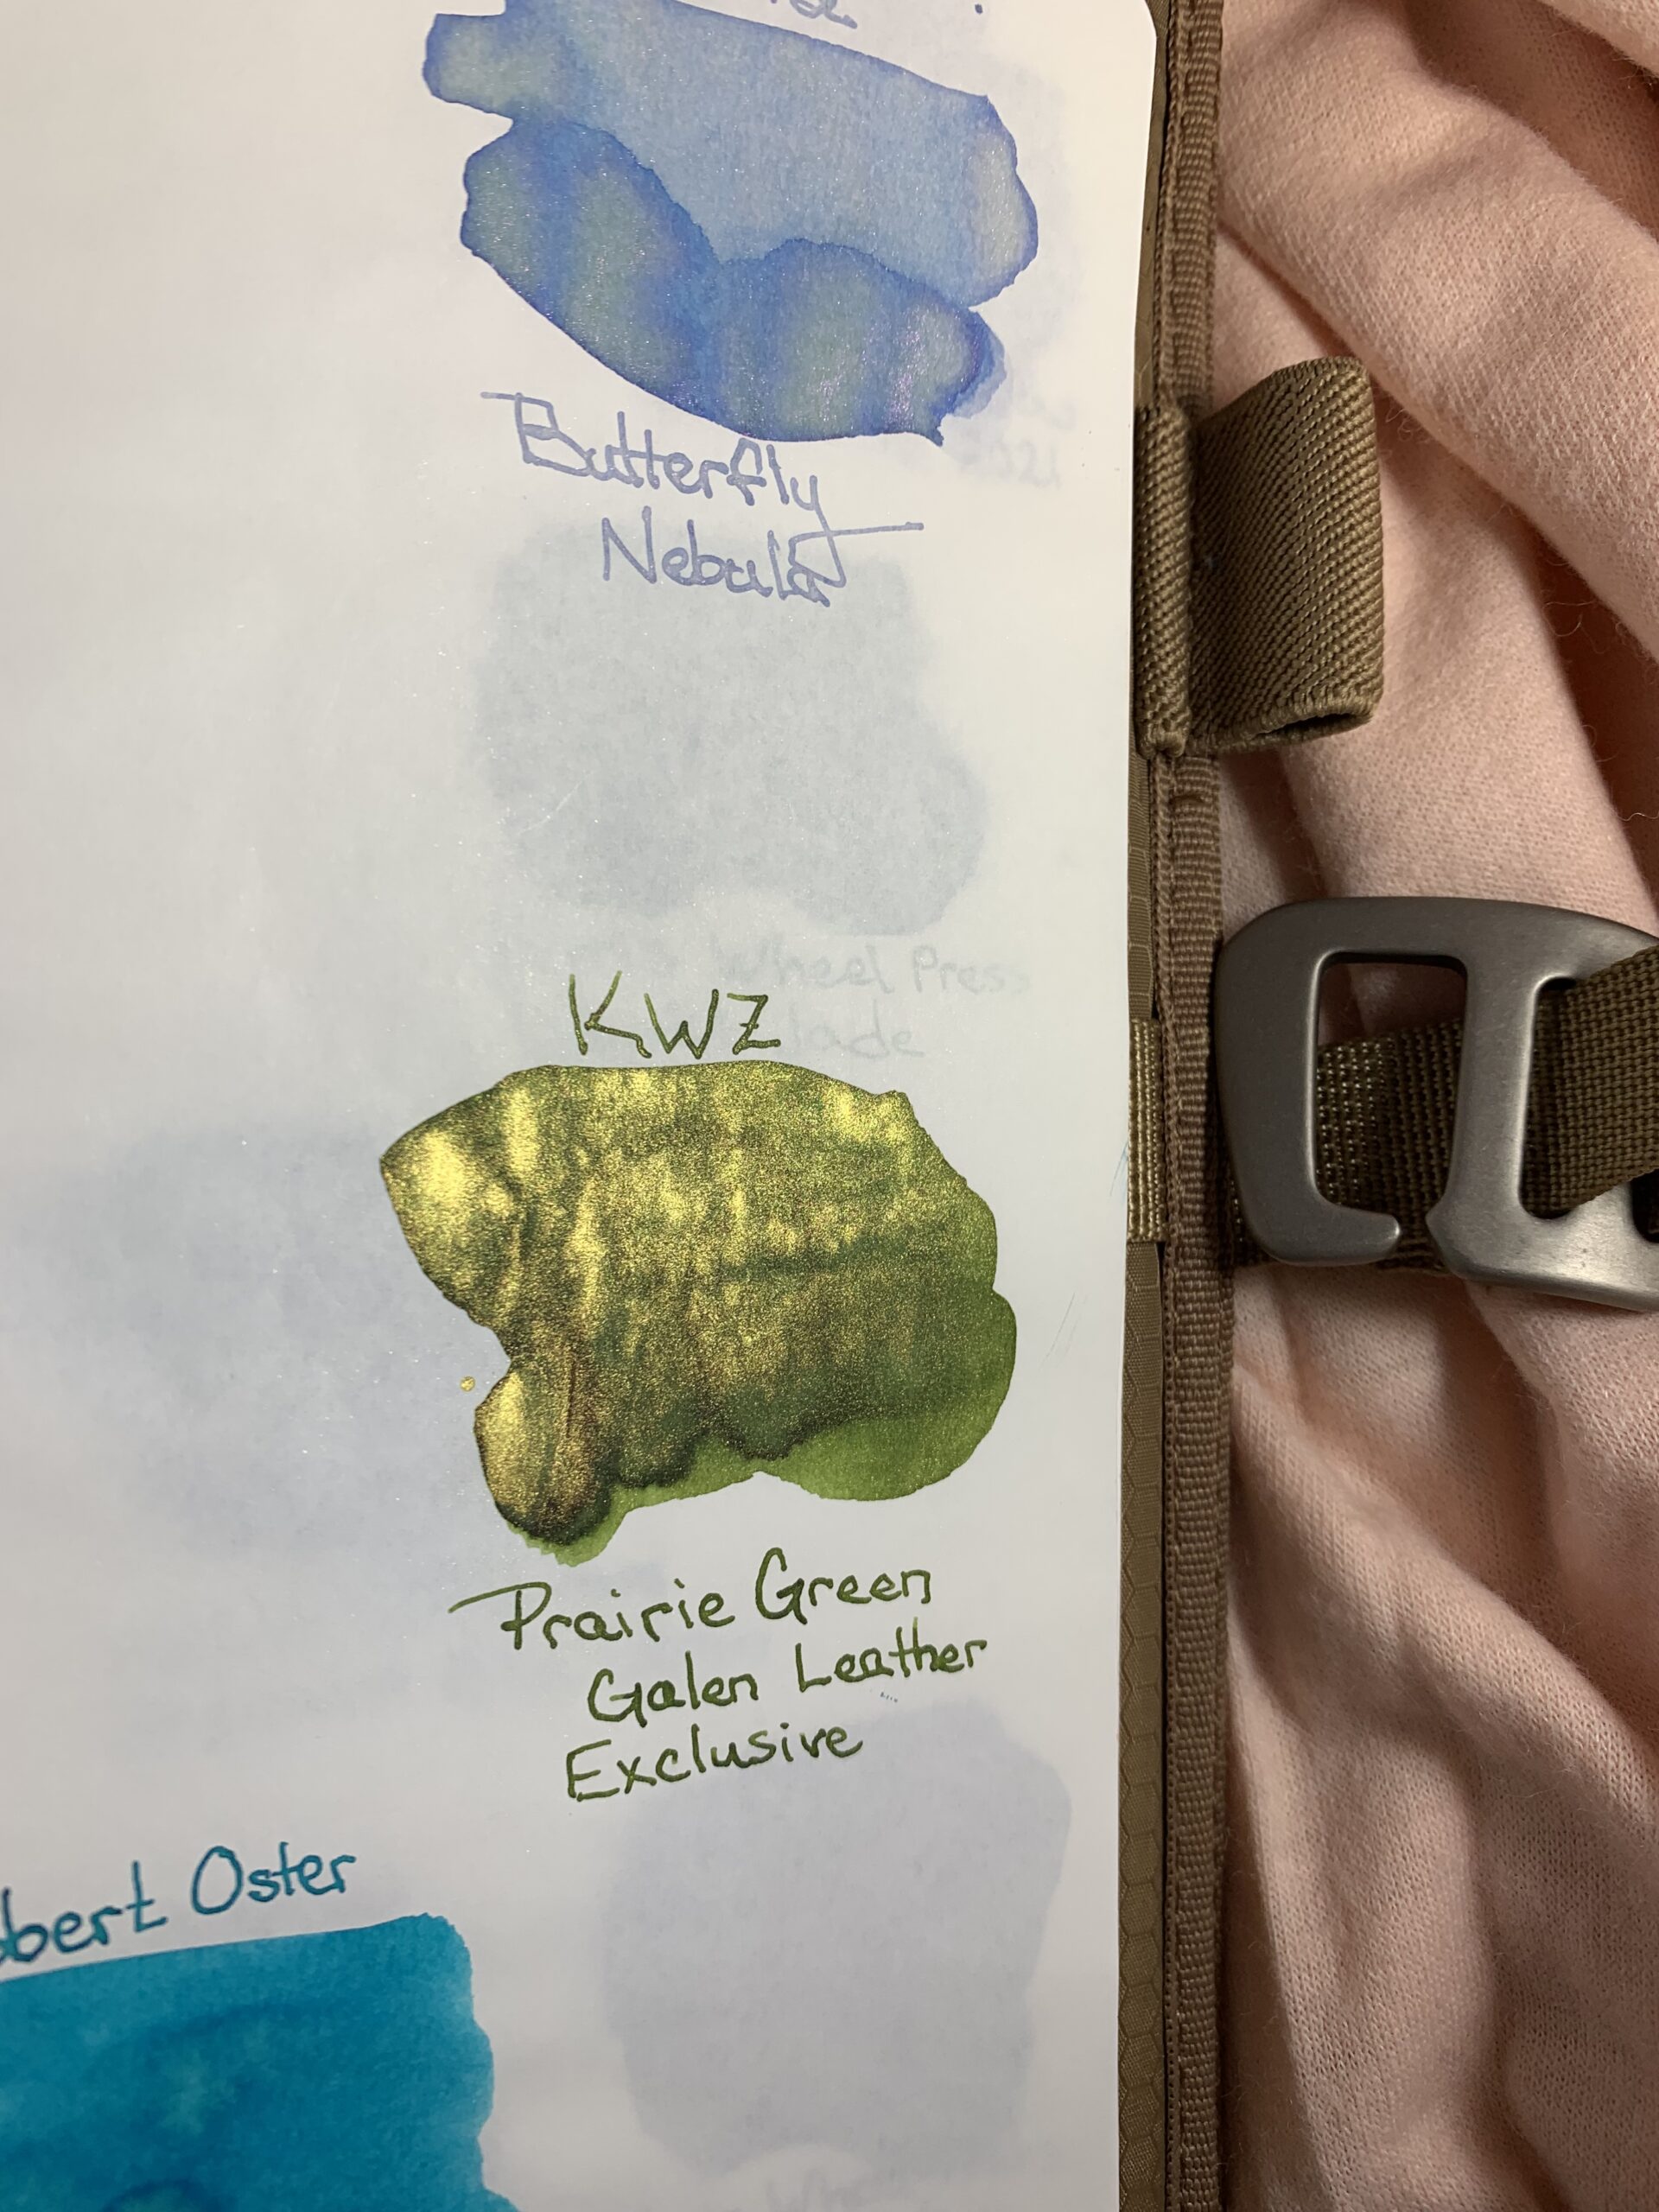 Butterfly
Nebula
Wheel Press
KWZ
Prairie Green
Galen Leather
Exclusive
Oster